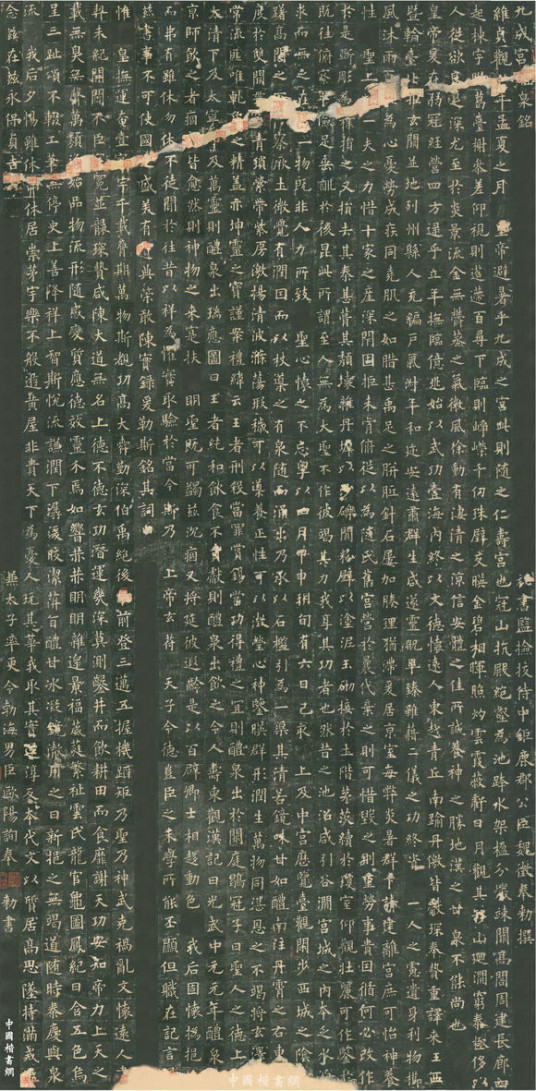 九成宮泉銘 祕書監檢校侍中鉅鹿郡公臣魏徵奉勅撰
維貞觀年孟夏之月 皇帝避暑乎九成之宮此則隨之仁壽宮也冠山抗殿絕壑為池跨水架楹分巖竦闕高閣周建長廊四
起棟宇葛臺榭參差仰視則迢遰百尋下臨則崢嶸千仞珠壁交映金碧相暉照灼雲霞蔽虧日月觀其移山迴澗窮泰極侈以
人從欲良足深尤至於炎景流金無鬱蒸之氣微風徐動有淒清之涼信安體之佳所誠養神之勝地漢之甘泉不能尚也
皇帝爰在弱冠經營四方逮乎立年撫臨億兆始以武功壹海內終以文德懷遠人東越青丘南踰丹徼皆獻琛奉贄重譯來王西
暨輪臺北拒玄闕並地列州縣人充編戶氣淑年和邇安遠肅群生咸遂靈貺畢臻雖藉二儀之功終資 一人之慮遺身利物櫛
風沐雨百為心憂勞成疾同堯肌之如腊甚禹足之胼胝針石屢加腠理猶滯爰居京室每弊炎暑群下請建離宮庶可怡神養
性 聖上一夫之力惜十家之產深閉固拒未肯俯從以為隨氏舊宮營於曩代棄之則可惜毀之則重勞事貴因循何必改作
於是斲彫為損之又損去其泰甚葺其頹壞雜丹墀以沙礫間粉壁以塗泥玉砌接於土階茅茨續於瓊室仰觀壯麗可作鑒於
既往俯察足垂訓於後昆此所謂至人無為大聖不作彼竭其力我享其功者也然昔之池沼咸引谷澗宮城之內本乏水源
求而無之在一物既非人力所致 聖心懷之不忘粵以四月甲申朔旬有六日己亥 上及中宮歷覽臺觀閑步西城之陰
躇高閣之察厥土微覺有潤因而以杖導之有泉隨而涌出乃承以石檻引為一渠其清若鏡味甘如醴南注丹霄之右東
度於雙闕青瑣縈帶紫房激揚清波滌蕩瑕穢可以導養正性可以澂瑩心神鑒映群形潤生萬物同湛恩之不竭將玄澤
常流匪唯乾之精蓋亦坤靈之寶謹案禮緯云王者刑殺當罪賞錫當功得禮之宜則醴泉出於闕庭鶡冠子曰聖人之德上
太清下及太寧及萬靈則醴泉出瑞應圖曰王者純和飲食不貢獻則醴泉出飲之令人壽東觀漢記曰光武中元元年醴泉
京師飲之者痼皆愈然則神物之來寔扶 明聖既可蠲茲沉痼又將延彼遐齡是以百辟卿士相趨動色 我后固懷撝挹
而弗有雖休勿休不徒聞於往昔以祥為懼實取驗於當今斯乃 上帝玄符 天子令德豈臣之末學所能丕顯但職在記言
茲書事不可使國之盛美有遺典策敢陳實錄爰勒斯銘其詞曰
惟 皇撫運奄壹寰宇千載膺期萬物斯覩功高大舜勤深伯禹絕後光前登三邁五握機蹈矩乃聖乃神武克禍亂文懷遠人
契未紀開闢不臣冠冕並襲琛贄咸陳大道無名上德不德玄功潛運幾深莫測鑿井而飲耕田而食靡謝天功安知帝力上天之
載無臭無聲萬類資始品物流形隨感變質應德效靈介焉如響赫赫明明雜遝景福葳蕤繁祉雲氏龍官龜圖鳳紀日含五色烏
呈三趾頌不輟工筆無停史上善降祥上智斯悅流謙潤下潺湲皎潔萍旨醴甘冰凝鏡澈用之日新挹之無竭道隨時泰慶與泉
流 我后夕惕雖休弗休居崇茅宇樂不般遊黃屋非貴天下為憂人玩其華我取其實還淳反本代文以質居高思墜持滿戒
念茲在茲永保貞吉 兼太子率更令勃海男臣歐陽詢奉勅書
中國楷書網
中國楷書網